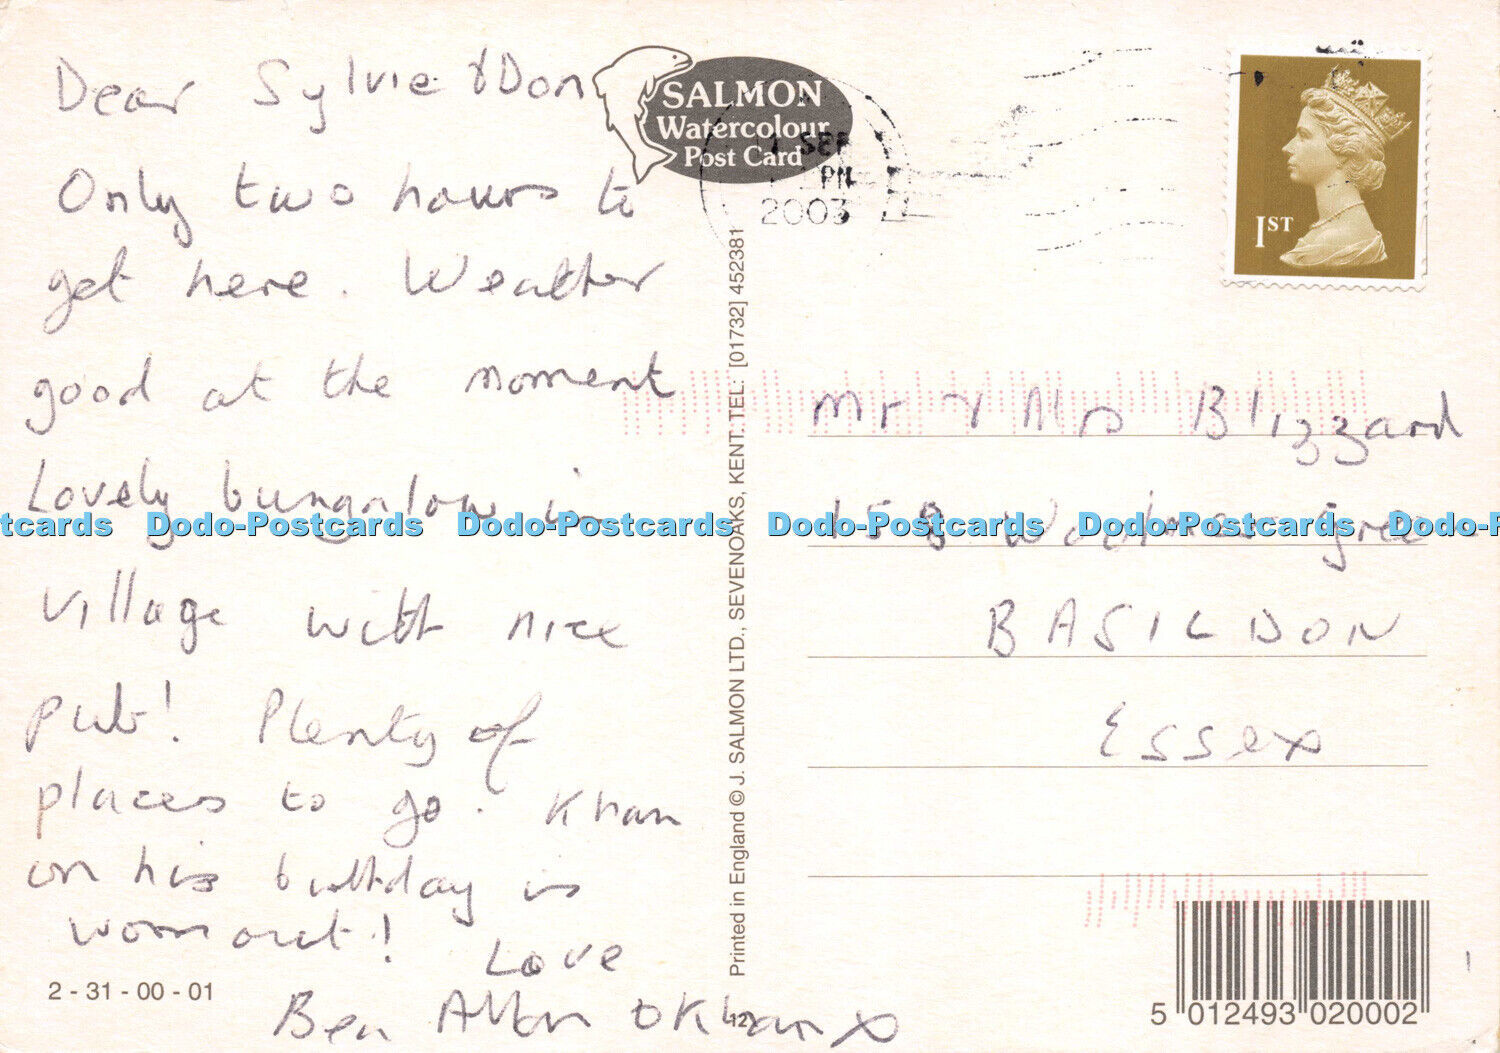 Dear Sylvie & Don
Only two hours to
get here. Weather
good at the moment
Lovely bungalow in
village with nice
pub! Plenty of
places to go. Khan
on his birthday is
worn out!
Love
Ben & Khan x
2 - 31 - 00 - 01
SALMON
Watercolour
Post Card
1 SEP
PM
2003
1ST
Printed in England © J. SALMON LTD., SEVENOAKS, KENT. TEL: [01732] 452381
12
Mr & Mrs Blizzard
158 Green
BASILDON
Essex
5 012493 020002
Dodo-Postcards Dodo-Postcards Dodo-Postcards